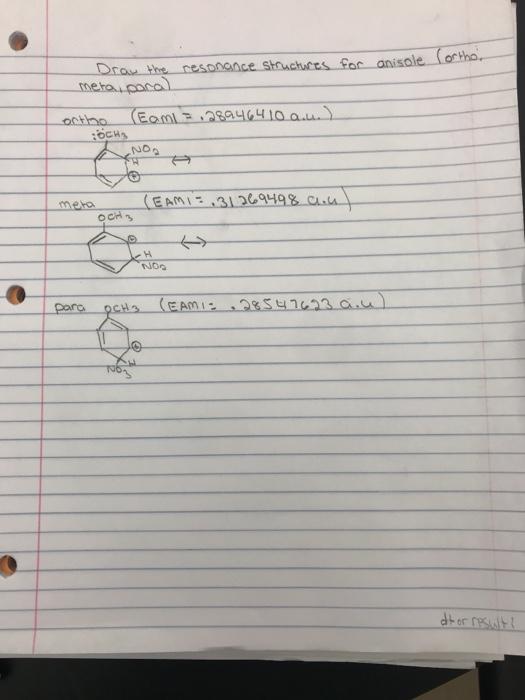 Draw the resonance structures for anisole (ortho,
meta, para)
ortho (Eam1 = .28946410 a.u.)
:ÖCH3
NO2
H
+
↔
meta (EAM1 = .31369498 a.u)
OCH3
+
↔
H
NO2
para OCH3 (EAM1= .28547623 a.u)
+
H
NO3